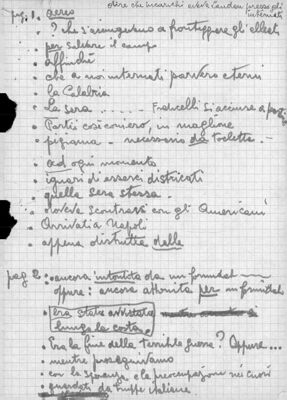 oltre che incarichi aveva London presso gli
internati
pag. 1. aereo
. ? che s'accingevano a fronteggiare gli alleati
. per salubre il campo
. affinché
. che a noi internati parvero eterni
. la Calabria
. La sera ...... Fraticelli si accinse a
. Partii così com'ero, in maglione
. pigiama - necessario da toeletta -
. ad ogni momento
. ignari di esserci districati
. quella sera stessa
. doveva scontrarsi con gli Americani
. Arrivati a Napoli
. appena distrutta dalla
pag 2: ancora intontita da un formidab
oppure: ancora attonita per un formidab
. era stata avvistata
lungo la costa
. Era la fine della terribile guerra? Oppure...
. mentre proseguivamo
. con la speranza e la preoccupazione nei cuori
. guardati da truppe italiane